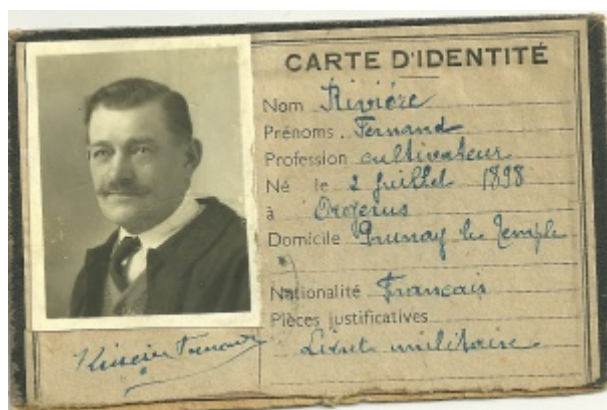 CARTE D'IDENTITÉ
Nom Rivière
Prénoms . Fernand
Profession cultivateur
Né le 2 Juillet 1898
à Orgerus
Domicile Prunay le Temple
Nationalité Français
Pièces justificatives
Livret militaire
Rivière Fernand